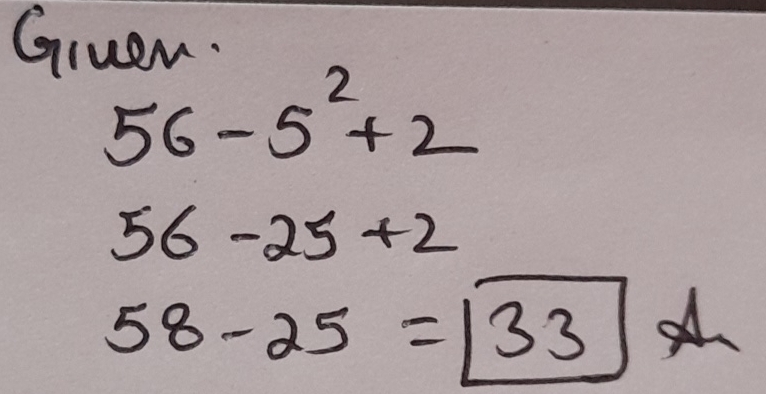 Given.
56 - 5² + 2
56 - 25 + 2
58 - 25 = 33